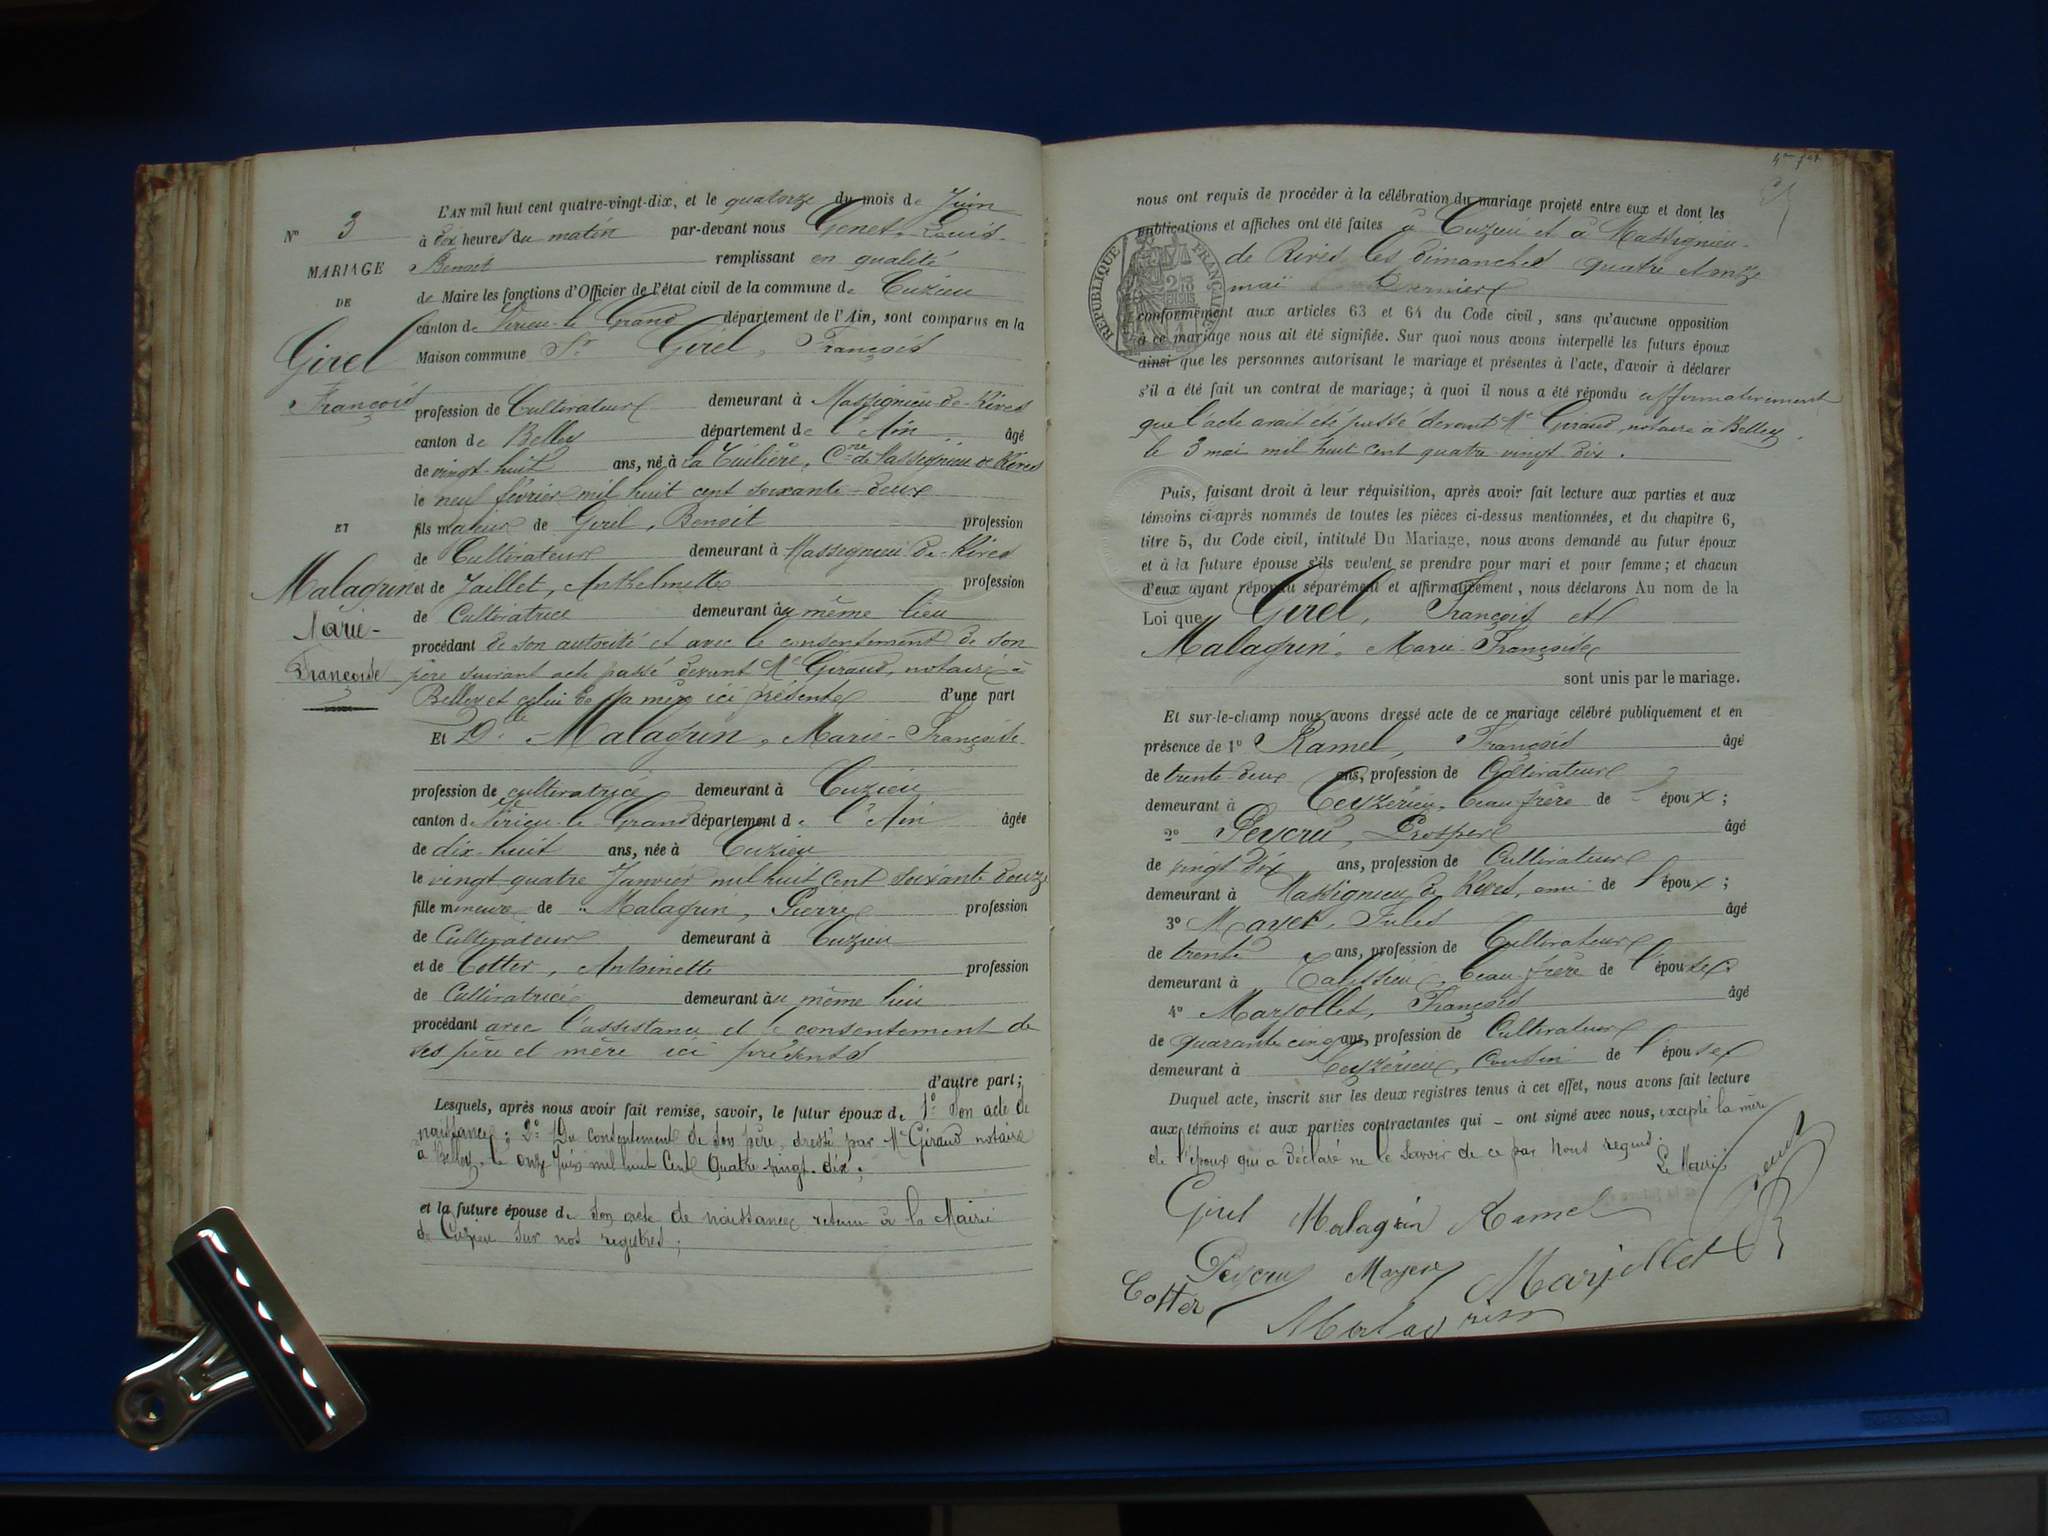 L'AN mil huit cent quatre-vingt-dix, et le quatorze du mois de Juin
N° 3
à dix heures du matin par-devant nous Genet, Louis-
MARIAGE
Benoit remplissant en qualité
DE
de Maire les fonctions d'Officier de l'état civil de la commune de Cuzieu
canton de Virieu-le-Grand département de l'Ain, sont comparus en la
Girel
Maison commune Sr Girel, François
François
profession de Cultivateur demeurant à Massignieu-de-Rives
canton de Belley département de l'Ain âgé
de vingt-huit ans, né à la Tuilière, Cne de Massignieu de Rives
le neuf février mil huit cent soixante-deux
ET
fils majeur de Girel, Benoit profession
de Cultivateur demeurant à Massignieu-de-Rives
Malagrin
et de Jaillet, Anthelmette profession
de Cultivatrice demeurant au même lieu
Marie-
procédant de son autorité et avec le consentement de son
Françoise
père suivant acte passé devant Me Giraud, notaire à
Belley et celui de sa mère ici présente d'une part
Et Dlle Malagrin, Marie-Françoise
profession de cultivatrice demeurant à Cuzieu
canton de Virieu-le-Grand département de l'Ain âgée
de dix-huit ans, née à Cuzieu
le vingt-quatre Janvier mil huit cent soixante-douze
fille mineure de Malagrin, Pierre profession
de Cultivateur demeurant à Cuzieu
et de Cotter, Antoinette profession
de Cultivatrice demeurant au même lieu
procédant avec l'assistance et le consentement de
ses père et mère ici présents
d'autre part;
Lesquels, après nous avoir fait remise, savoir, le futur époux de 1° Son acte de
naissance; 2° Du consentement de son père, dressé par Me Giraud notaire
à Belley, le onze Juin mil huit Cent Quatre-vingt-dix;
et la future épouse de son acte de naissance retenu à la Mairie
de Cuzieu sur nos registres;
nous ont requis de procéder à la célébration du mariage projeté entre eux et dont les
publications et affiches ont été faites à Cuzieu et à Massignieu-
de Rives les dimanches quatre et onze
mai dernier
RÉPUBLIQUE FRANÇAISE
conformément aux articles 63 et 64 du Code civil, sans qu'aucune opposition
à ce mariage nous ait été signifiée. Sur quoi nous avons interpellé les futurs époux
ainsi que les personnes autorisant le mariage et présentes à l'acte, d'avoir à déclarer
s'il a été fait un contrat de mariage; à quoi il nous a été répondu affirmativement
que l'acte avait été passé devant Me Giraud, notaire à Belley,
le 3 mai mil huit cent quatre-vingt dix.
Puis, faisant droit à leur réquisition, après avoir fait lecture aux parties et aux
témoins ci-après nommés de toutes les pièces ci-dessus mentionnées, et du chapitre 6,
titre 5, du Code civil, intitulé Du Mariage, nous avons demandé au futur époux
et à la future épouse s'ils veulent se prendre pour mari et pour femme; et chacun
d'eux ayant répondu séparément et affirmativement, nous déclarons Au nom de la
Loi que Girel, François et
Malagrin, Marie-Françoise
sont unis par le mariage.
Et sur-le-champ nous avons dressé acte de ce mariage célébré publiquement et en
présence de 1° Ramel, François âgé
de trente-deux ans, profession de Cultivateur
demeurant à Ceyzérieu, beau-frère de époux;
2° Peycru, Prosper âgé
de vingt six ans, profession de Cultivateur
demeurant à Massignieu de Rives, ami de l'époux;
3° Mayer, Jules âgé
de trente ans, profession de Cultivateur
demeurant à Talissieu, beau-frère de l'épouse
4° Marjollet, François âgé
de quarante cinq ans, profession de Cultivateur
demeurant à Ceyzérieu, cousin de l'épouse
Duquel acte, inscrit sur les deux registres tenus à cet effet, nous avons fait lecture
aux témoins et aux parties contractantes qui - ont signé avec nous, excepté la mère
de l'époux qui a déclaré ne le savoir de ce par nous requis.
Le Maire
Girel Malagrin Ramel Genet
Peycru Mayer Marjollet
Cotter
Malagrin